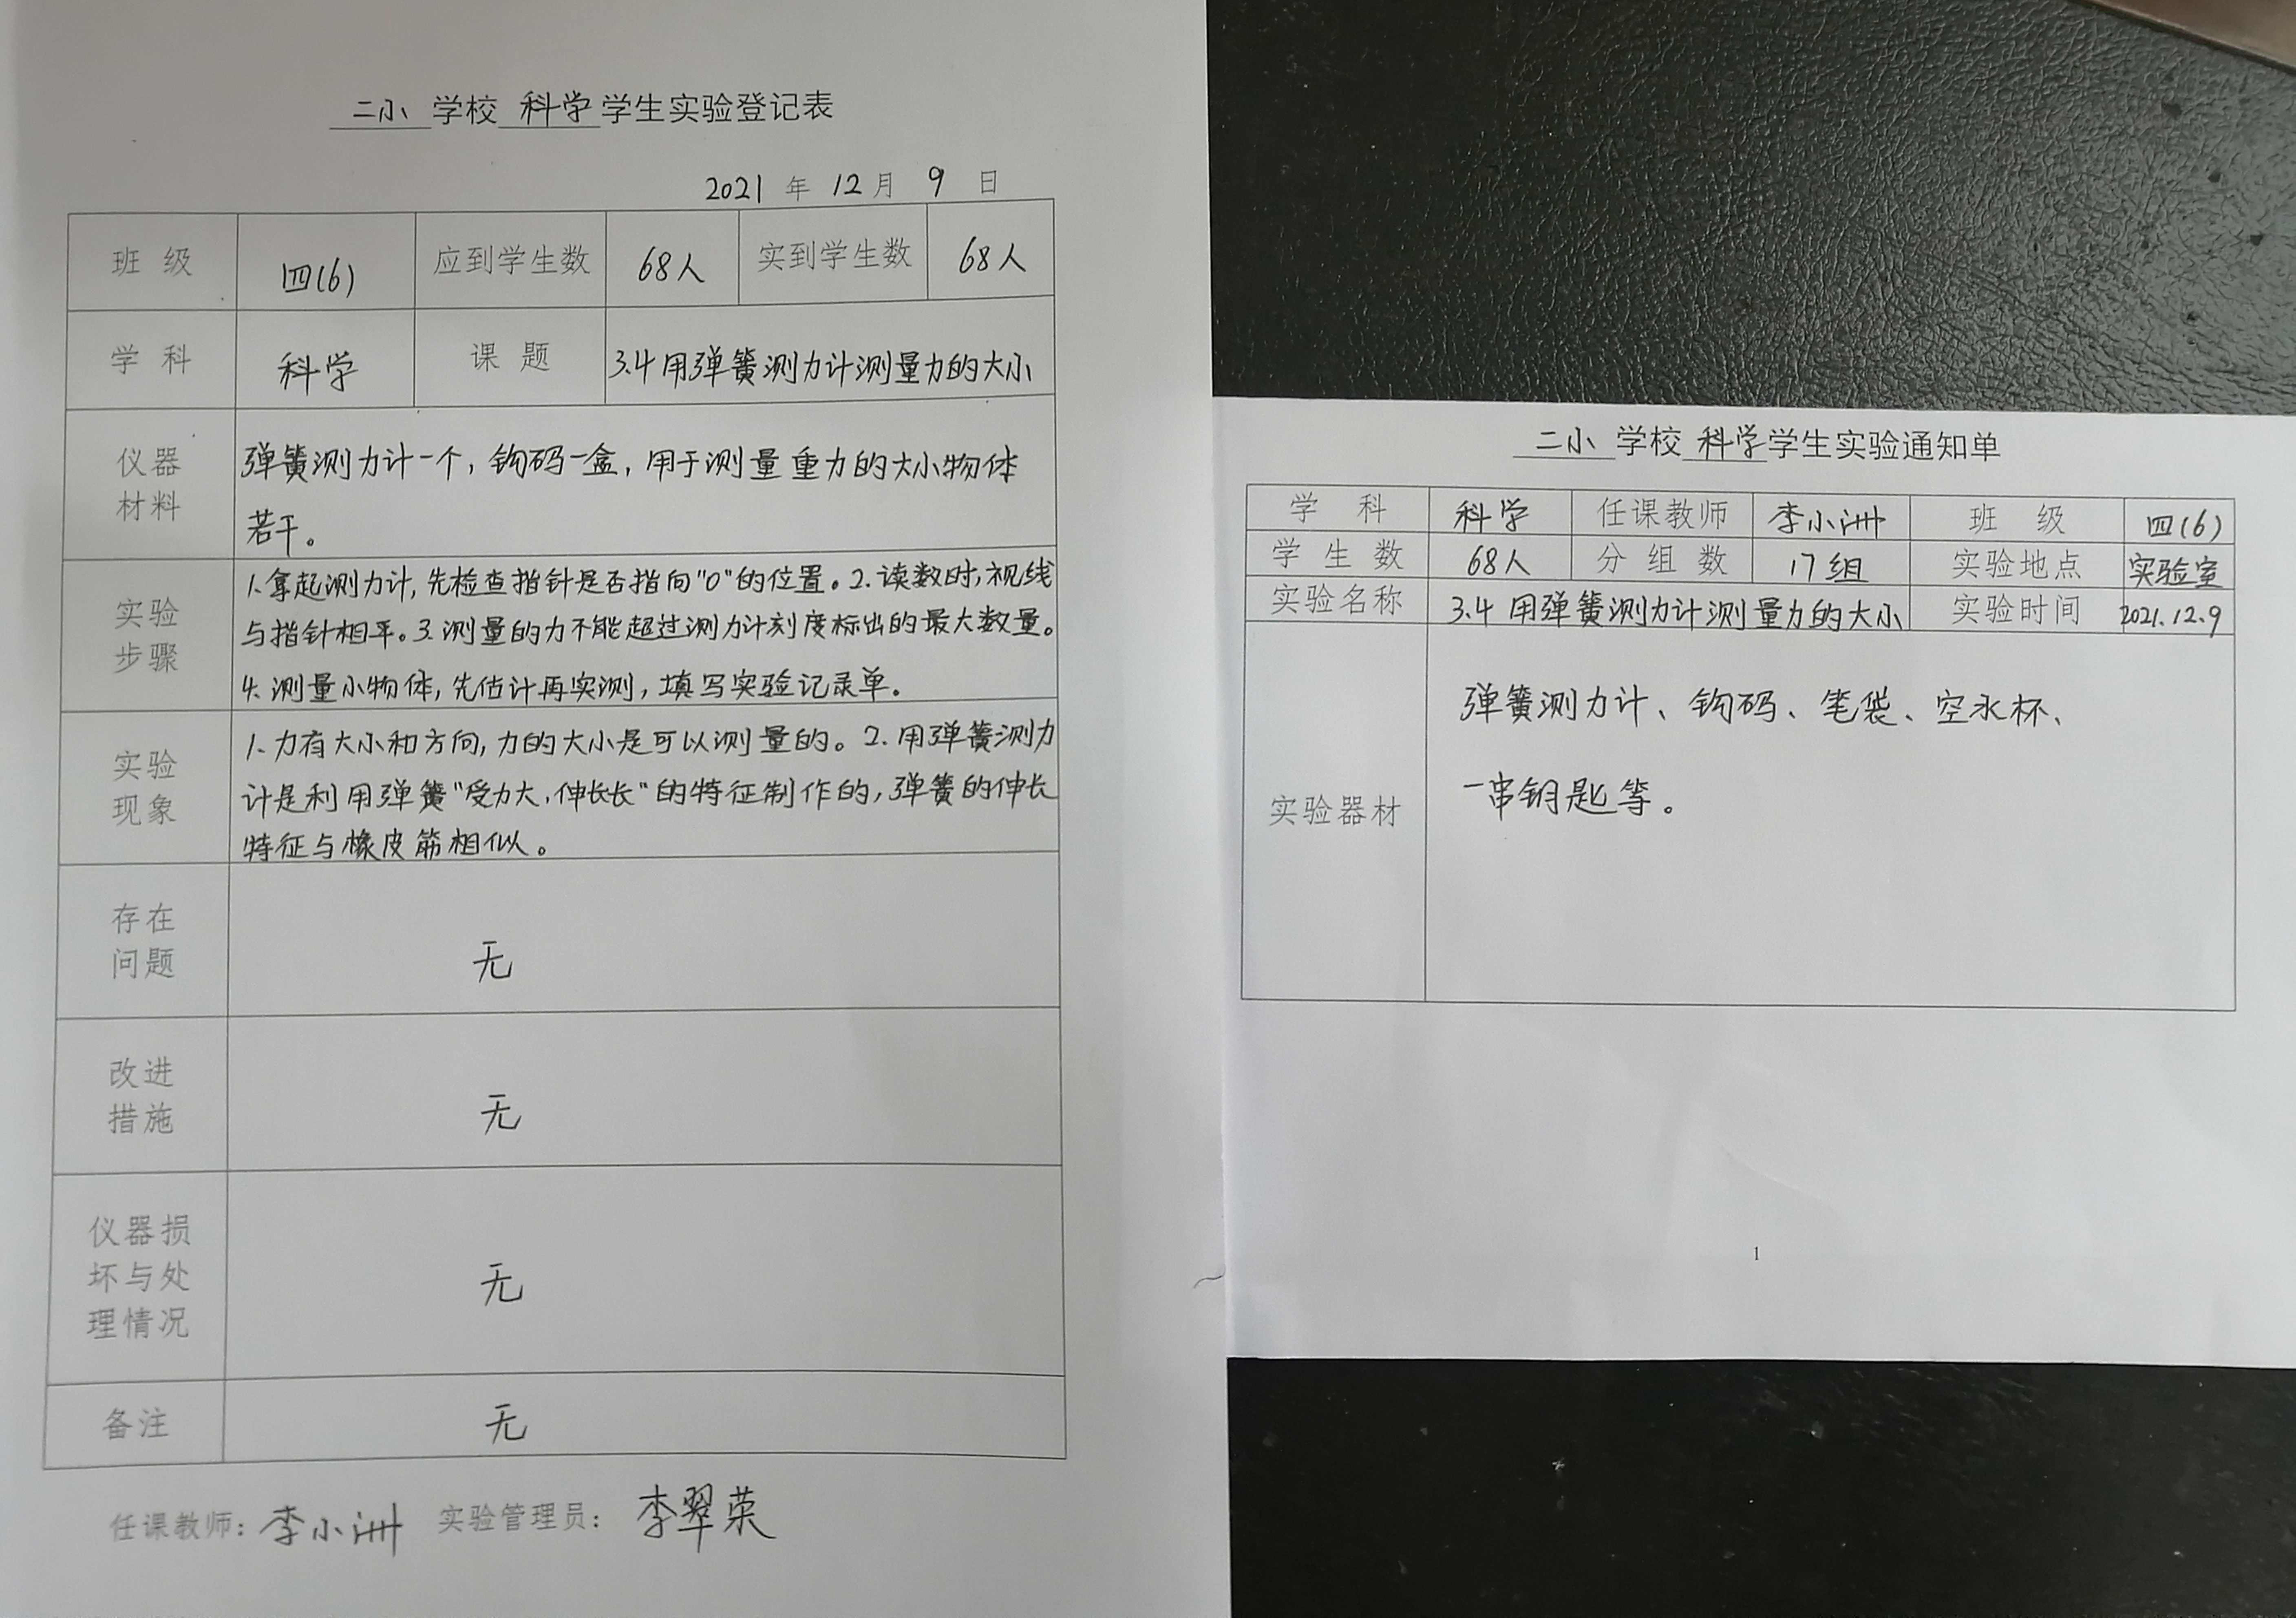 二小 学校 科学 学生实验登记表
2021 年 12 月 9 日
班 级 四(6) 应到学生数 68人 实到学生数 68人
学 科 科学 课 题 3.4用弹簧测力计测量力的大小
仪器
材料
弹簧测力计一个，钩码一盒，用于测量重力的大小物体
若干。
实验
步骤
1.拿起测力计，先检查指针是否指向"0"的位置。2.读数时，视线
与指针相平。3.测量的力不能超过测力计刻度标出的最大数量。
4.测量小物体，先估计再实测，填写实验记录单。
实验
现象
1.力有大小和方向，力的大小是可以测量的。2.用弹簧测力
计是利用弹簧"受力大，伸长长"的特征制作的，弹簧的伸长
特征与橡皮筋相似。
存在
问题
无
改进
措施
无
仪器损
坏与处
理情况
无
备注 无
任课教师：李小洲 实验管理员：李翠荣
二小 学校 科学 学生实验通知单
学 科 科学 任课教师 李小洲 班 级 四(6)
学 生 数 68人 分 组 数 17组 实验地点 实验室
实验名称 3.4 用弹簧测力计测量力的大小 实验时间 2021.12.9
实验器材
弹簧测力计、钩码、笔袋、空水杯、
一串钥匙等。
1